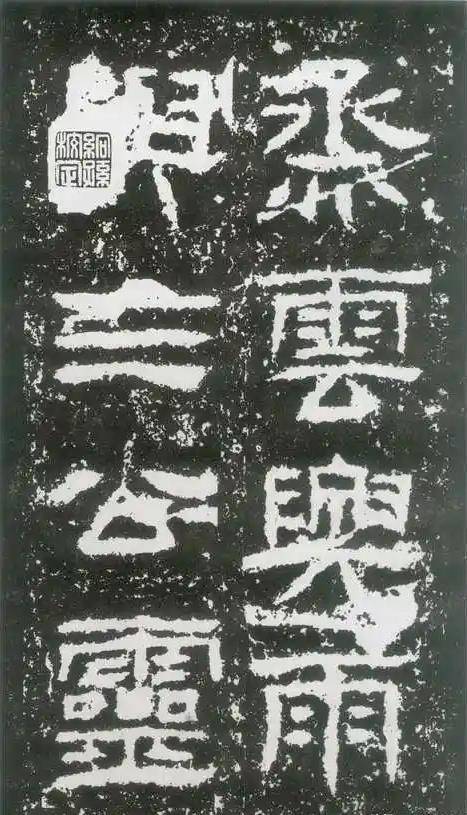 烝雲興雨
與三公靈